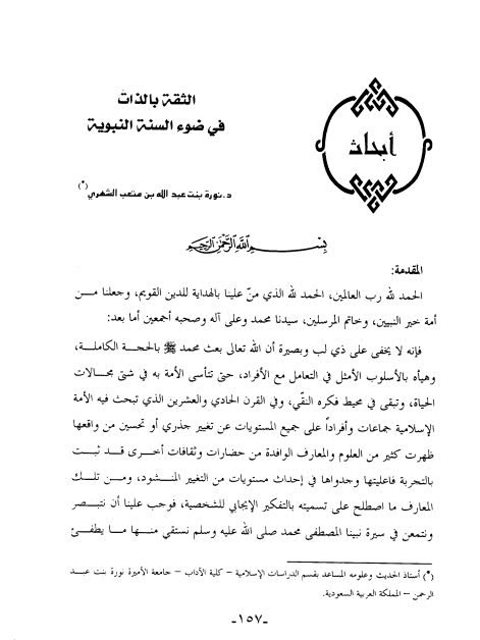 أبحاث
الثقة بالذات
في ضوء السنة النبوية
د. نورة بنت عبد الله بن متعب الشهري (*)
بسم الله الرحمن الرحيم
المقدمة:
الحمد لله رب العالمين، الحمد لله الذي منّ علينا بالهداية للدين القويم، وجعلنا من
أمة خير النبيين، وخاتم المرسلين، سيدنا محمد وعلى آله وصحبه أجمعين أما بعد:
فإنه لا يخفى على ذي لب وبصيرة أن الله تعالى بعث محمد ﷺ بالحجة الكاملة،
وهيأه بالأسلوب الأمثل في التعامل مع الأفراد، حتى تتأسى الأمة به في شتى مجالات
الحياة، وتبقى في محيط فكره النقّي، وفي القرن الحادي والعشرين الذي تبحث فيه الأمة
الإسلامية جماعات وأفراداً على جميع المستويات عن تغيير جذري أو تحسين من واقعها
ظهرت كثير من العلوم والمعارف الوافدة من حضارات وثقافات أخرى قد ثبت
بالتجربة فاعليتها وجدواها في إحداث مستويات من التغيير المنشود، ومن تلك
المعارف ما اصطلح على تسميته بالتفكير الإيجابي للشخصية، فوجب علينا أن نتبصر
ونتمعن في سيرة نبينا المصطفى محمد صلى الله عليه وسلم نستقي منها ما يطفئ
(*) أستاذ الحديث وعلومه المساعد بقسم الدراسات الإسلامية – كلية الآداب – جامعة الأميرة نورة بنت عبد
الرحمن – المملكة العربية السعودية.
-١٥٧-